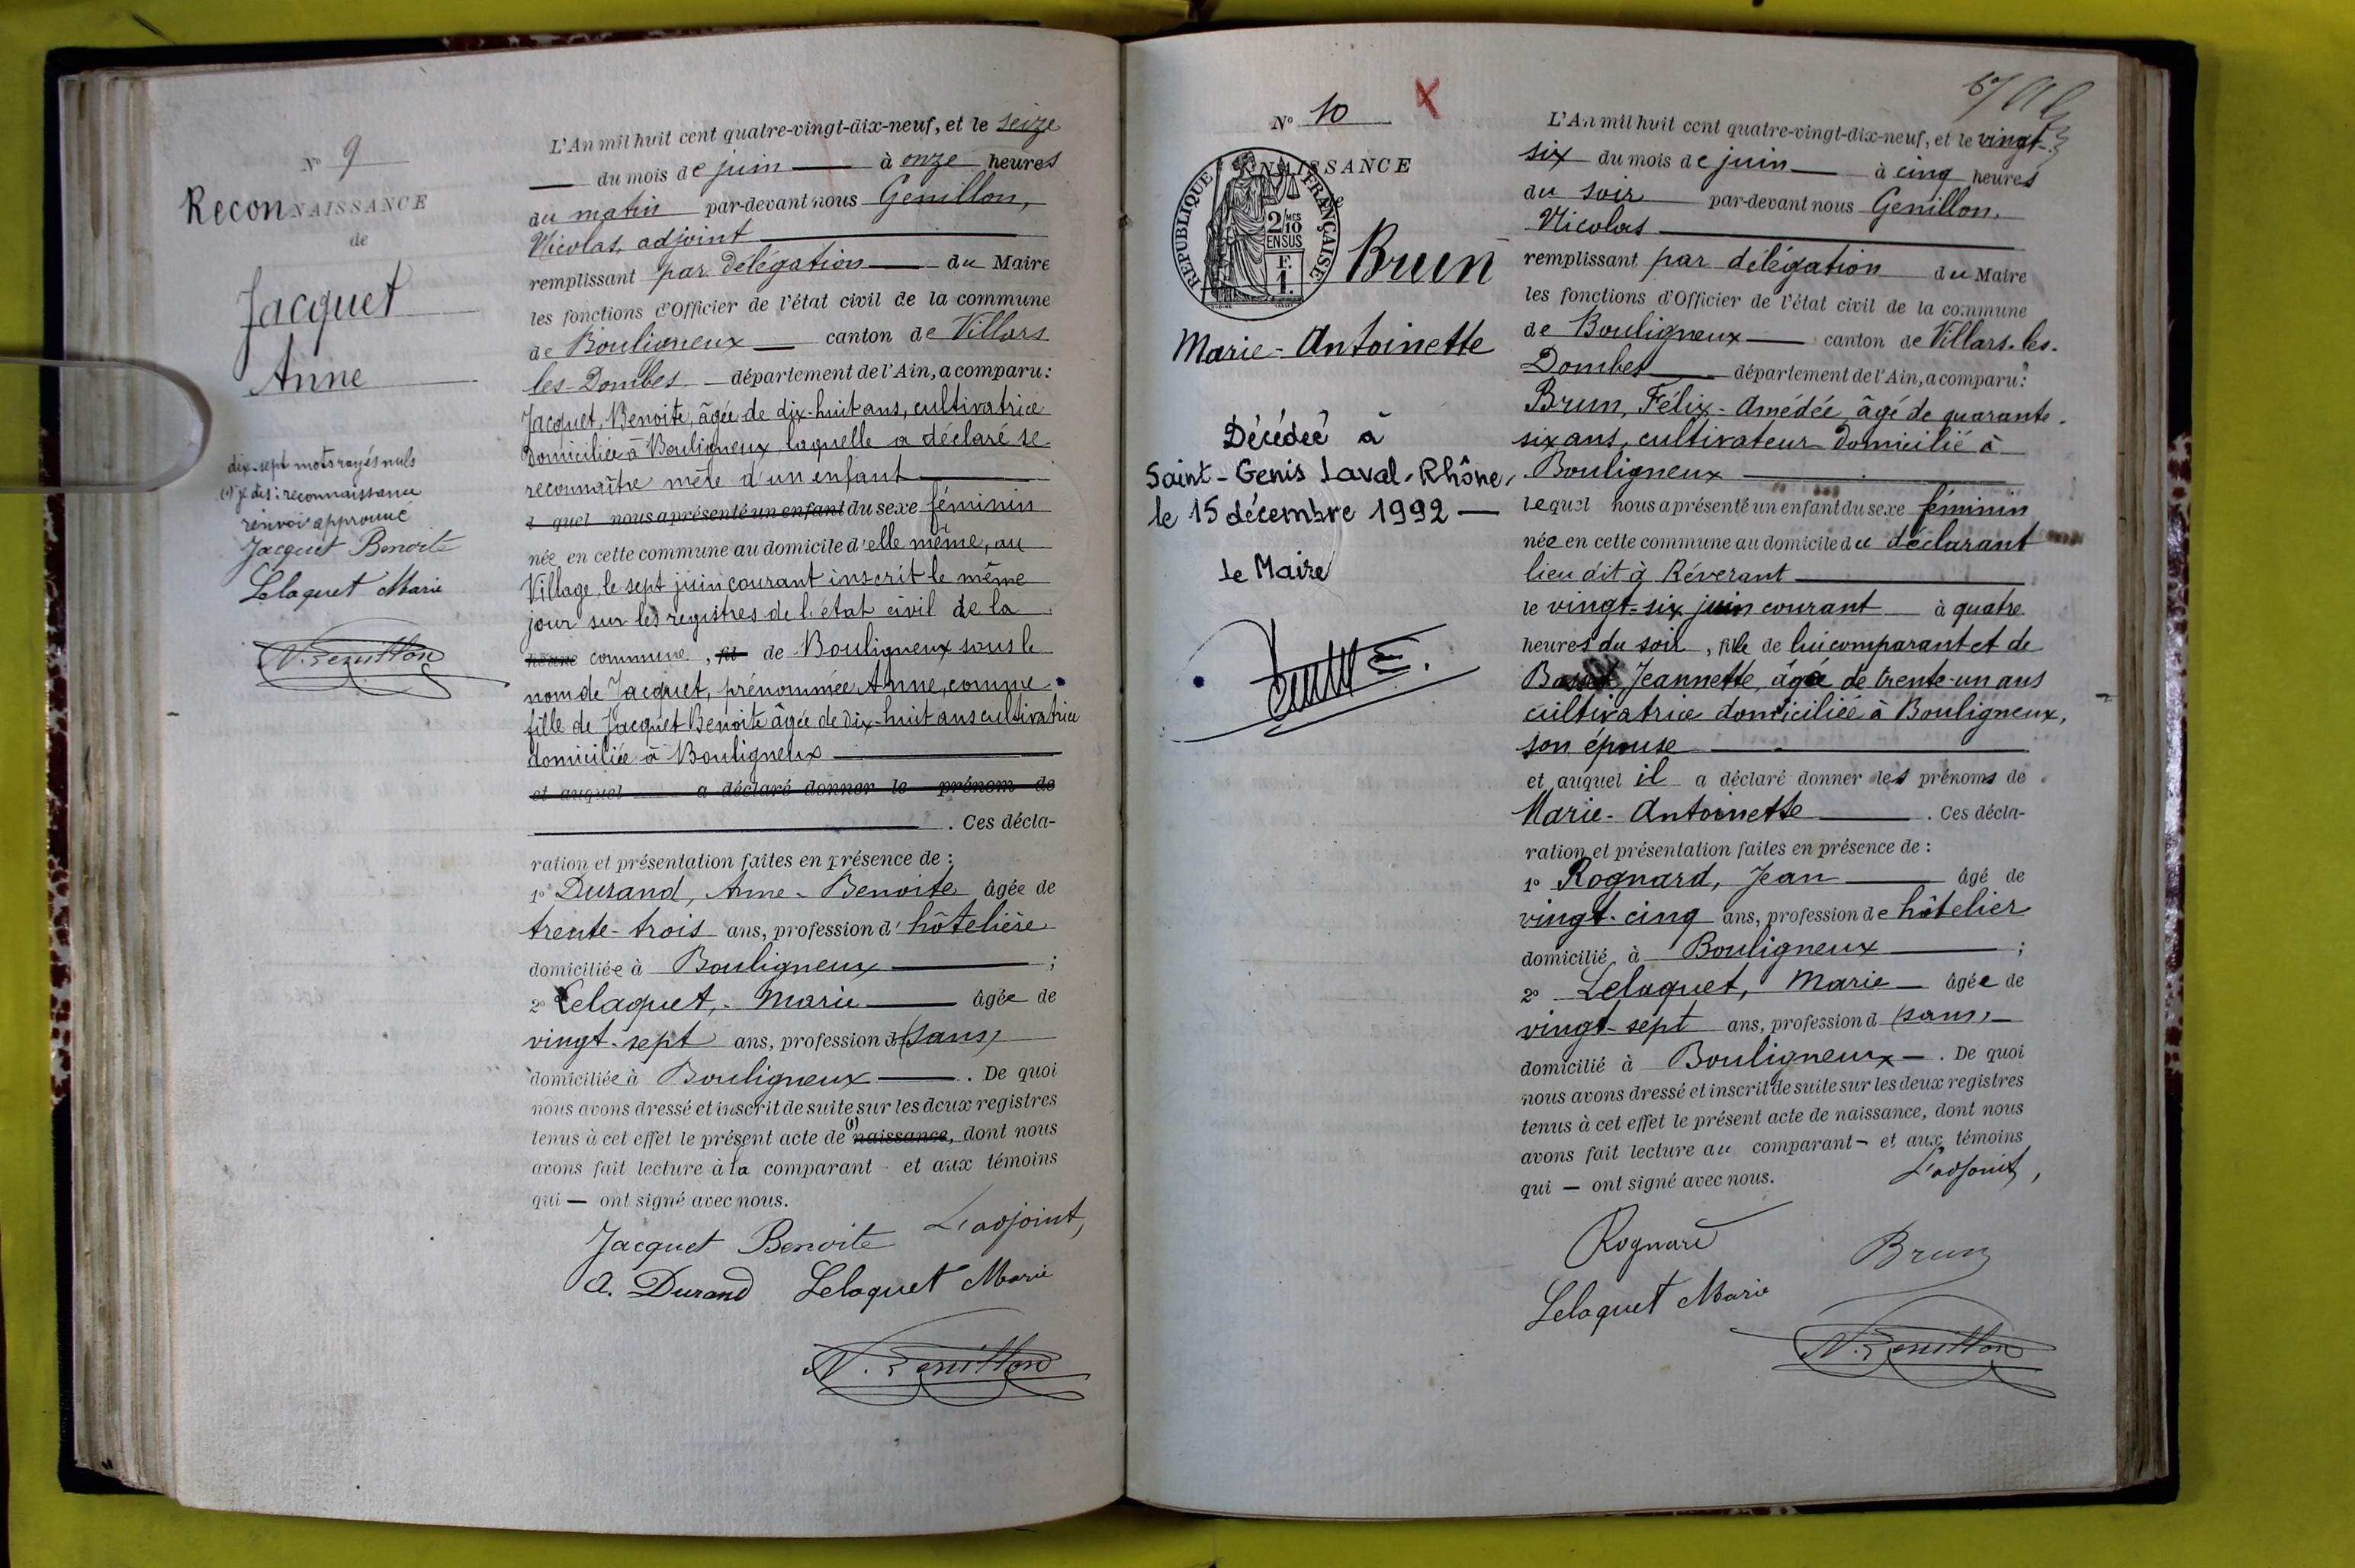 N° 9
ReconNAISSANCE
de
Jacquet
Anne
dix-sept mots rayés nuls
(1) je dis : reconnaissance
renvoi approuvé
Jacquet Benoite
Lelaquet Marie
N. Genillon
L'An mil huit cent quatre-vingt-dix-neuf, et le seize
du mois de juin à onze heures
du matin par-devant nous Genillon,
Nicolas, adjoint
remplissant par délégation du Maire
les fonctions d'Officier de l'état civil de la commune
de Bouligneux canton de Villars
les-Dombes département de l'Ain, a comparu :
Jacquet, Benoite, âgée de dix-huit ans, cultivatrice
domiciliée à Bouligneux, laquelle a déclaré se
reconnaître mère d'un enfant
quel nous a présenté un enfant du sexe féminin
née en cette commune au domicile d'elle même, au
Village, le sept juin courant inscrit le même
jour sur les registres de l'état civil de la
heure commune, fil de Bouligneux sous le
nom de Jacquet, prénommée Anne, comme
fille de Jacquet Benoite âgée de dix-huit ans cultivatrice
domiciliée à Bouligneux
et auquel a déclaré donner le prénom de
. Ces décla-
ration et présentation faites en présence de :
1° Durand, Anne-Benoite âgée de
trente-trois ans, profession d'hôtelière
domiciliée à Bouligneux ;
2° Lelaquet, Marie âgée de
vingt-sept ans, profession d (sans)
domiciliée à Bouligneux . De quoi
nous avons dressé et inscrit de suite sur les deux registres
tenus à cet effet le présent acte de (1) naissance, dont nous
avons fait lecture à la comparant et aux témoins
qui — ont signé avec nous.
Jacquet Benoite L'adjoint,
A. Durand Lelaquet Marie
N. Genillon
N° 10
NAISSANCE
de
REPUBLIQUE FRANÇAISE
2/10 MES
EN SUS
F.
1.
Brun
Marie-Antoinette
Décédée à
Saint-Genis Laval, Rhône,
le 15 décembre 1992 —
Le Maire
L'An mil huit cent quatre-vingt-dix-neuf, et le vingt-
six du mois de juin à cinq heures
du soir par-devant nous Genillon,
Nicolas
remplissant par délégation du Maire
les fonctions d'Officier de l'état civil de la commune
de Bouligneux canton de Villars-les-
Dombes département de l'Ain, a comparu :
Brun, Félix-Amédée, âgé de quarante-
six ans, cultivateur domicilié à
Bouligneux
lequel nous a présenté un enfant du sexe féminin
née en cette commune au domicile du déclarant
lieu dit à Réverant
le vingt-six juin courant à quatre
heures du soir, fille de lui comparant et de
Jeannette, âgée de trente-un ans
cultivatrice domiciliée à Bouligneux,
son épouse
et auquel il a déclaré donner les prénoms de
Marie-Antoinette . Ces décla-
ration et présentation faites en présence de :
1° Rognard, Jean âgé de
vingt-cinq ans, profession de hôtelier
domicilié à Bouligneux ;
2° Lelaquet, Marie — âgée de
vingt-sept ans, profession d (sans) —
domicilié à Bouligneux — . De quoi
nous avons dressé et inscrit de suite sur les deux registres
tenus à cet effet le présent acte de naissance, dont nous
avons fait lecture au comparant — et aux témoins
qui — ont signé avec nous. L'adjoint,
Rognard Brun
Lelaquet Marie
N. Genillon